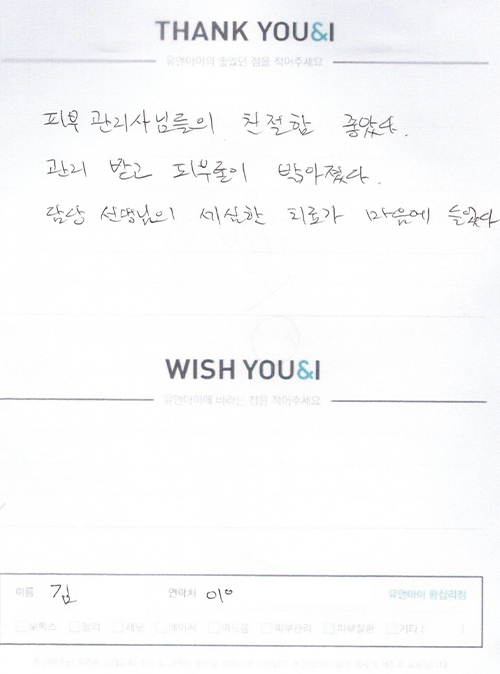 THANK YOU&I
유앤아이의 좋았던 점을 적어주세요
피부 관리사님들의 친절함 좋았다.
관리 받고 피부톤이 밝아졌다.
담당 선생님의 세심한 치료가 마음에 들었다
WISH YOU&I
유앤아이에 바라는 점을 적어주세요
이름 김 연락처 010 유앤아이 왕십리점
보톡스 필러 제모 레이저 여드름 피부관리 피부질환 기타 ( )